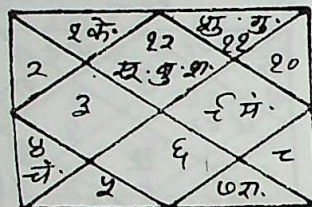 १ के.
१२
शु. गु.
११
२
सू. बु. श.
१०
३
९ मं.
४
चं.
६
८
५
७ रा.